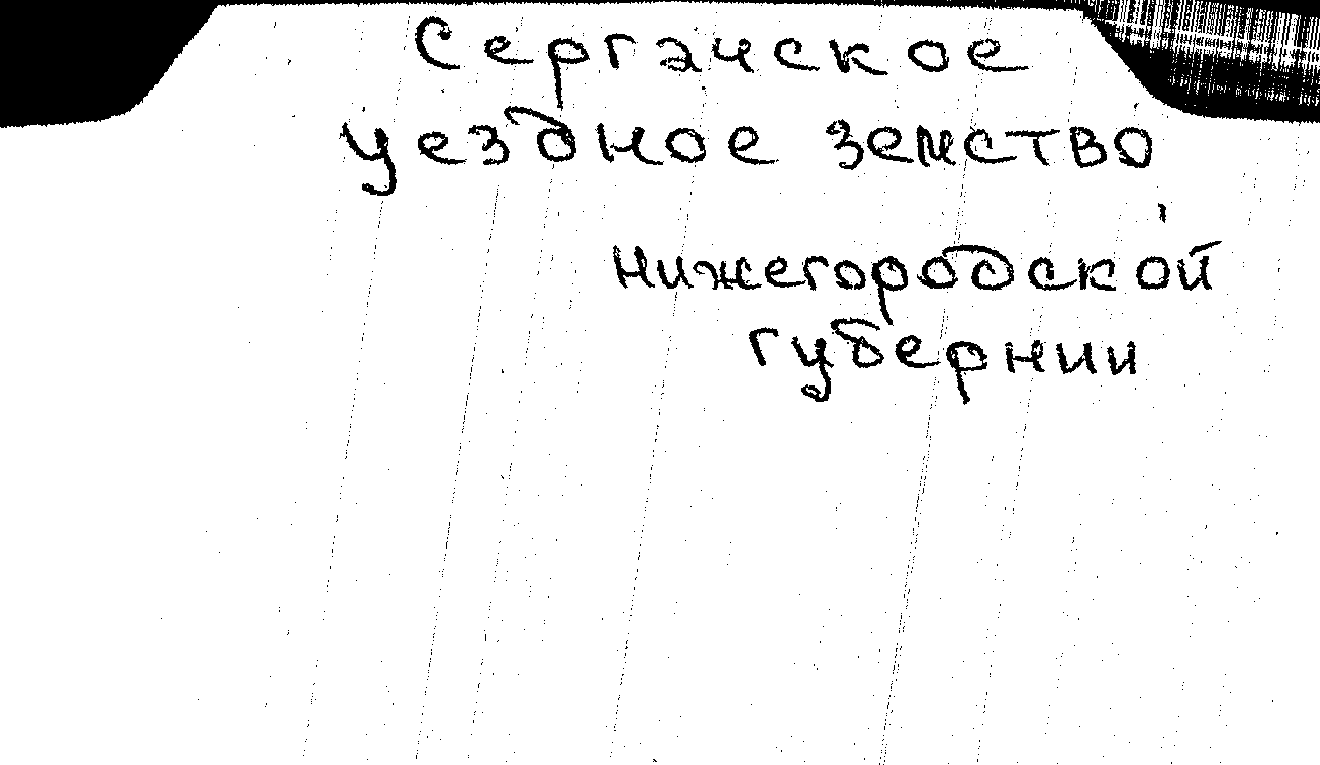 Сергачское
уездное земство
Нижегородской
губернии